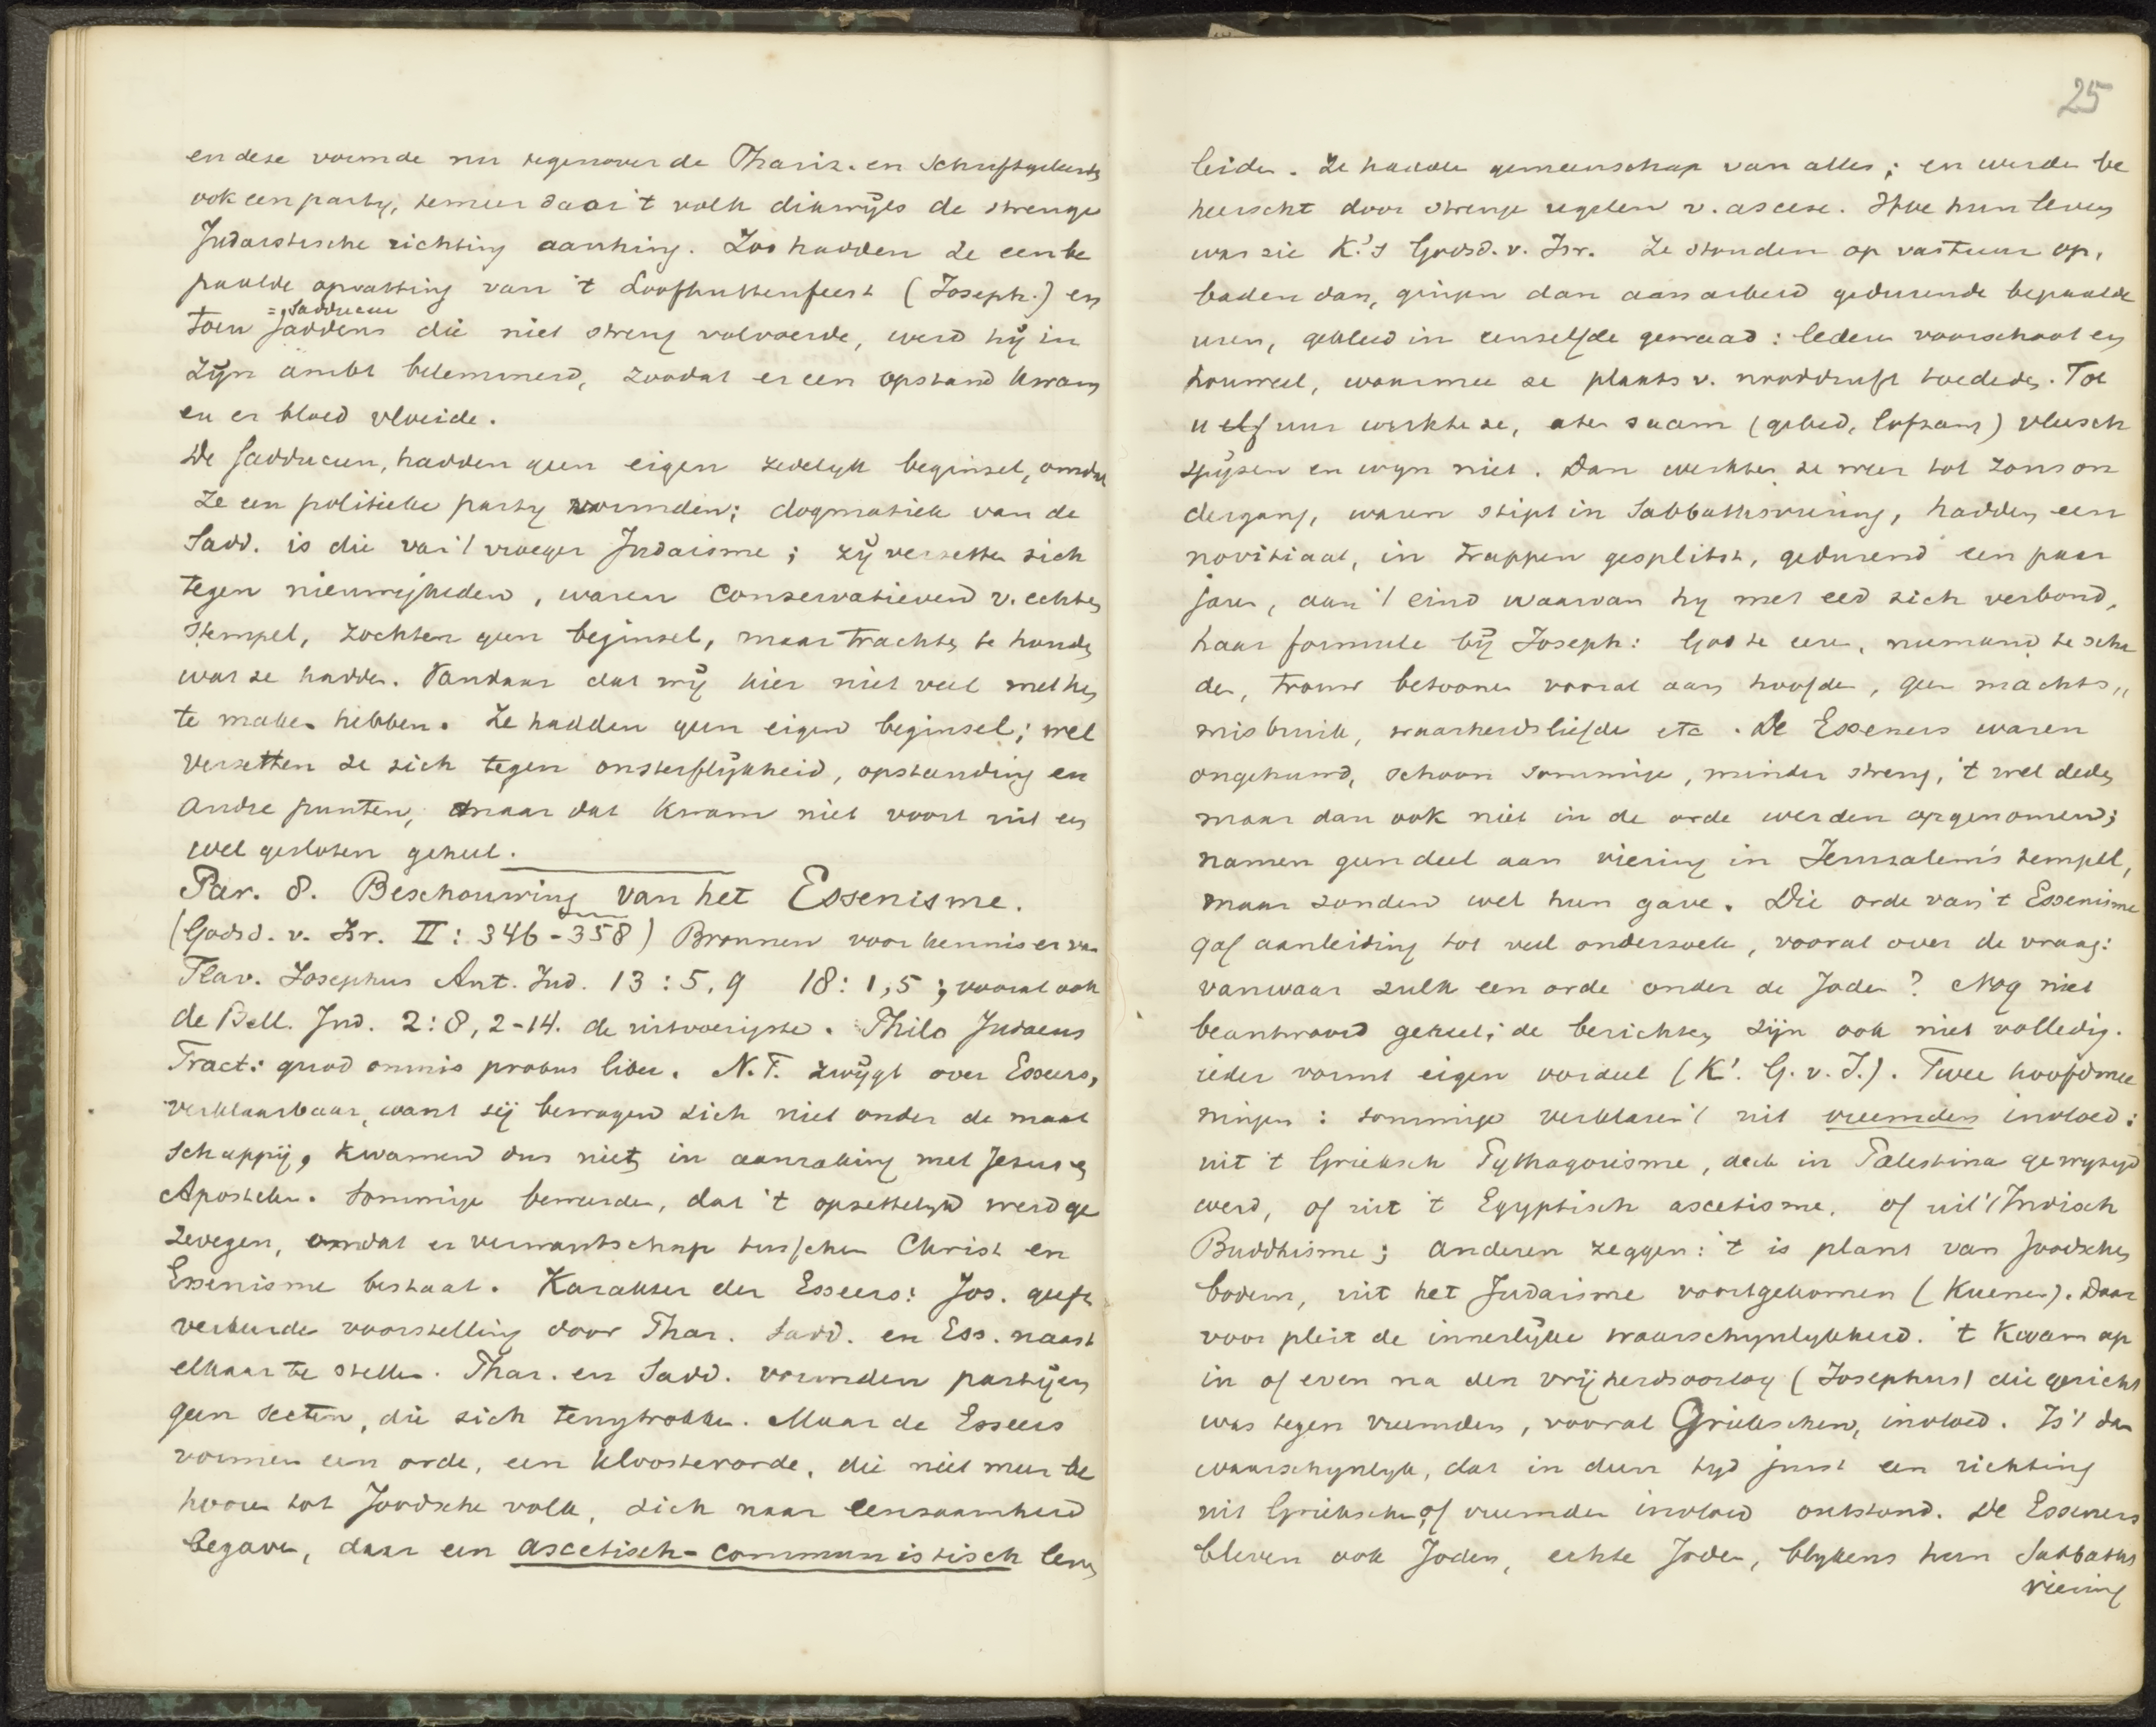 en deze vormde nu tegenover de Phariz. en Schriftgeleerden
ook een party, temeer daar 't volk dikwijls de strenge
Judaistische richting aanhing. Zoo hadden ze een be
paalde opvatting van 't Loofhuttenfeest (Joseph.) en
= Sadduceeu
toen Jaddens die niet streng volvoerde, werd hij in
zijn ambt belemmerd, zoodat er een opstand kwam
en er bloed vloeide.
De Sadduceen, hadden geen eigen zedelyk beginsel, omdat
ze een politieke party vormden; dogmatiek van de
Sadd. is die van 't vroeger Judaisme; zy verzetten zich
tegen nieuwigheden, waren conservatieven v. echten
stempel, zochten geen beginsel, maar trachten te houden
wat ze hadden. Vandaar dat wij hier niet veel met hen
te maken hebben. Ze hadden geen eigen beginsel; wel
verzetten ze zich tegen onsterflijkheid, opstanding en
andre punten, maar dat kwam niet voort uit een
wel gesloten geheel.
Par. 8. Beschouwing van het Essenisme.
(Godsd. v. Isr. II: 346-358) Bronnen voor kennis er van
Flav. Josephus Ant. Jud. 13:5,9 18:1,5; vooral ook
de Bell. Jud. 2:8,2-14. de uitvoerigste. Philo Judaeus
Tract: quod omnis probus liber. N.T. zwijgt over Esseers,
verklaarbaar, want zij bewogen zich niet onder de maat
schappij, kwamen dus niet in aanraking met Jesus en
Apostelen. Sommige beweerden, dat 't opzettelijk werd ge
zwegen, omdat er verwantschap tusschen Christ en
Essenisme bestaat. Karakter der Esseers: Jos. geeft
verkeerde voorstelling door Phar. Sadd. en Ess. naast
elkaar te stellen. Phar. en Sadd. vormden partijen
geen secten, die zich terugtrokken. Maar de Esseers
vormen een orde, een kloosterorde, die niet meer be
hooren tot Joodsche volk, zich naar eenzaamheid
begaven, daar een ascetisch-communistisch leven
25
leiden. Ze hadden gemeenschap van alles; en werden be
heerscht door strenge regelen v. ascese. Hoe hun leven
was zie K.'s Godsd. v. Isr. Ze stonden op vast uur op,
baden dan, gingen dan aan arbeid gedurende bepaalde
uren, gekleed in eenzelfde gewaad: lederen voorschoot en
houweel, waarmee ze plaats v. nooddruft toededen. Tot
11 elf uur werkte ze, aten saam (gebed, lofzang) vleesch
spijzen en wyn niet. Dan werkten ze weer tot zonson
dergang, waren stipt in Sabbathsviering, hadden een
novitiaat, in trappen gesplitst, gedurend een paar
jaren, aan 't eind waarvan hy met eed zich verbond,
haar formule bij Joseph: God te eeren, niemand te scha
den, trouw betoonen vooral aan hoofden, geen machts„
misbruik, waarheidsliefde etc. De Esseners waren
ongehuwd, schoon sommige, minder streng, 't wel deden
maar dan ook niet in de orde werden opgenomen;
namen geen deel aan viering in Jerusalem's tempel,
maar zonden wel hun gave. Die orde van 't Essenisme
gaf aanleiding tot veel onderzoek, vooral over de vraag:
vanwaar zulk een orde onder de Joden? Nog niet
beantwoord geheel; de berichten zijn ook niet volledig.
ieder vormt eigen oordeel (K'. G. v. I.). Twee hoofdmee
ningen: sommige verklaren 't uit vreemden invloed:
uit 't Grieksch Pythagorisme, dat in Palestina gewyzigd
werd, of uit 't Egyptisch ascetisme, of uit 't Indisch
Buddhisme; anderen zeggen: 't is plant van Joodschen
bodem, uit het Judaisme voortgekomen (Kuenen). Daar
voor pleit de innerlijke waarschynlykheid. 't Kwam op
in of even na den vrijheidsoorlog (Josephus) die gericht
was tegen vreemden, vooral Griekschen, invloed. Is 't dan
waarschynlyk, dat in dien tyd juist een richting
uit Griekschen of vreemden invloed ontstond. De Esseners
bleven ook Joden, echte Joden, blykens hun Sabbaths
viering